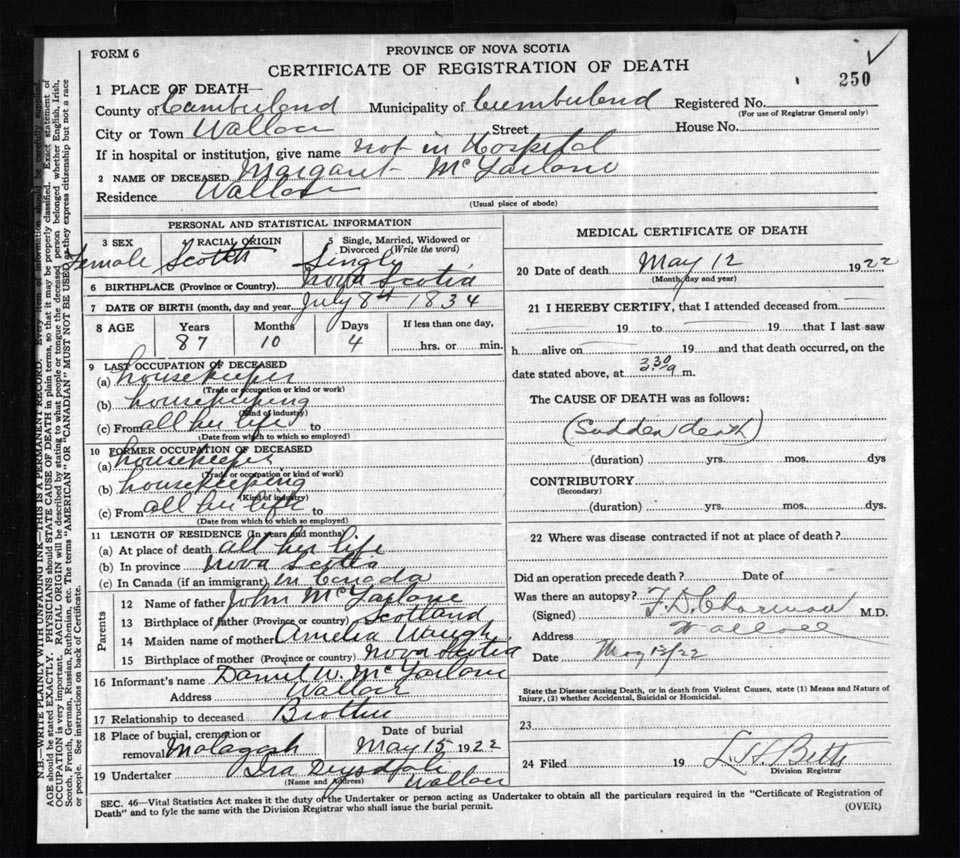 FORM 6
PROVINCE OF NOVA SCOTIA
CERTIFICATE OF REGISTRATION OF DEATH
250
1 PLACE OF DEATH—
County of Cumberland Municipality of Cumberland Registered No.
(For use of Registrar General only)
City or Town Wallace Street House No.
If in hospital or institution, give name not in Hospital
2 NAME OF DECEASED Margaret McFarlane
Residence Wallace
(Usual place of abode)
PERSONAL AND STATISTICAL INFORMATION
3 SEX 4 RACIAL ORIGIN 5 Single, Married, Widowed or Divorced (Write the word)
Female Scotch Single
6 BIRTHPLACE (Province or Country) Nova Scotia
7 DATE OF BIRTH (month, day and year) July 8th 1834
8 AGE Years Months Days If less than one day,
87 10 4 hrs. or min.
9 LAST OCCUPATION OF DECEASED
(a) housekeeper
(Trade or occupation or kind or work)
(b) housekeeping
(Kind of industry)
(c) From all her life to
(Date from which to which so employed)
10 FORMER OCCUPATION OF DECEASED
(a) housekeeper
(Trade or occupation or kind of work)
(b) housekeeping
(Kind of industry)
(c) From all her life to
(Date from which to which so employed)
11 LENGTH OF RESIDENCE (In years and months)
(a) At place of death all her life
(b) In province Nova Scotia
(c) In Canada (if an immigrant) in Canada
Parents
12 Name of father John McFarlane
13 Birthplace of father (Province or country) Scotland
14 Maiden name of mother Amelia Waugh
15 Birthplace of mother (Province or country) Nova Scotia
16 Informant's name Daniel W. McFarlane
Address Wallace
17 Relationship to deceased Brother
18 Place of burial, cremation or removal Malagash Date of burial May 15 1922
19 Undertaker Ira
(Name and Address) Wallace
MEDICAL CERTIFICATE OF DEATH
20 Date of death May 12 1922
(Month, day and year)
21 I HEREBY CERTIFY, that I attended deceased from
19 to 19 that I last saw
h alive on 19 and that death occurred, on the
date stated above, at 3.30 a m.
The CAUSE OF DEATH was as follows:
(Sudden death)
(duration) yrs. mos. dys
CONTRIBUTORY
(Secondary)
(duration) yrs. mos. dys.
22 Where was disease contracted if not at place of death?
Did an operation precede death? Date of
Was there an autopsy?
(Signed) F. D. M.D.
Address Wallace
Date May 13/22
State the Disease causing Death, or in death from Violent Causes, state (1) Means and Nature of
Injury, (2) whether Accidental, Suicidal or Homicidal.
23
24 Filed 19 Betts
Division Registrar
SEC. 46—Vital Statistics Act makes it the duty of the Undertaker or person acting as Undertaker to obtain all the particulars required in the "Certificate of Registration of
Death" and to fyle the same with the Division Registrar who shall issue the burial permit.
(OVER)
N.B.—WRITE PLAINLY WITH UNFADING INK—THIS IS A PERMANENT RECORD. Every item of information should be carefully supplied.
AGE should be stated EXACTLY. PHYSICIANS should STATE CAUSE OF DEATH in plain terms, so that it may be properly classified. Exact statement of
OCCUPATION is very important. RACIAL ORIGIN will be described by stating to what people or tongue the deceased person belonged whether English, Irish,
Scotch, French, German, Russian, Ruthenian, etc. The terms "AMERICAN" OR "CANADIAN" MUST NOT BE USED as they express citizenship but not a race
or people. See instructions on back of Certificate.